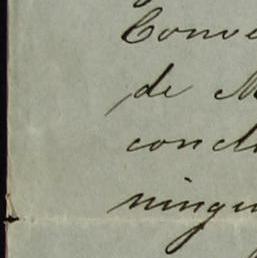 Conve
de M
conclu
ningu